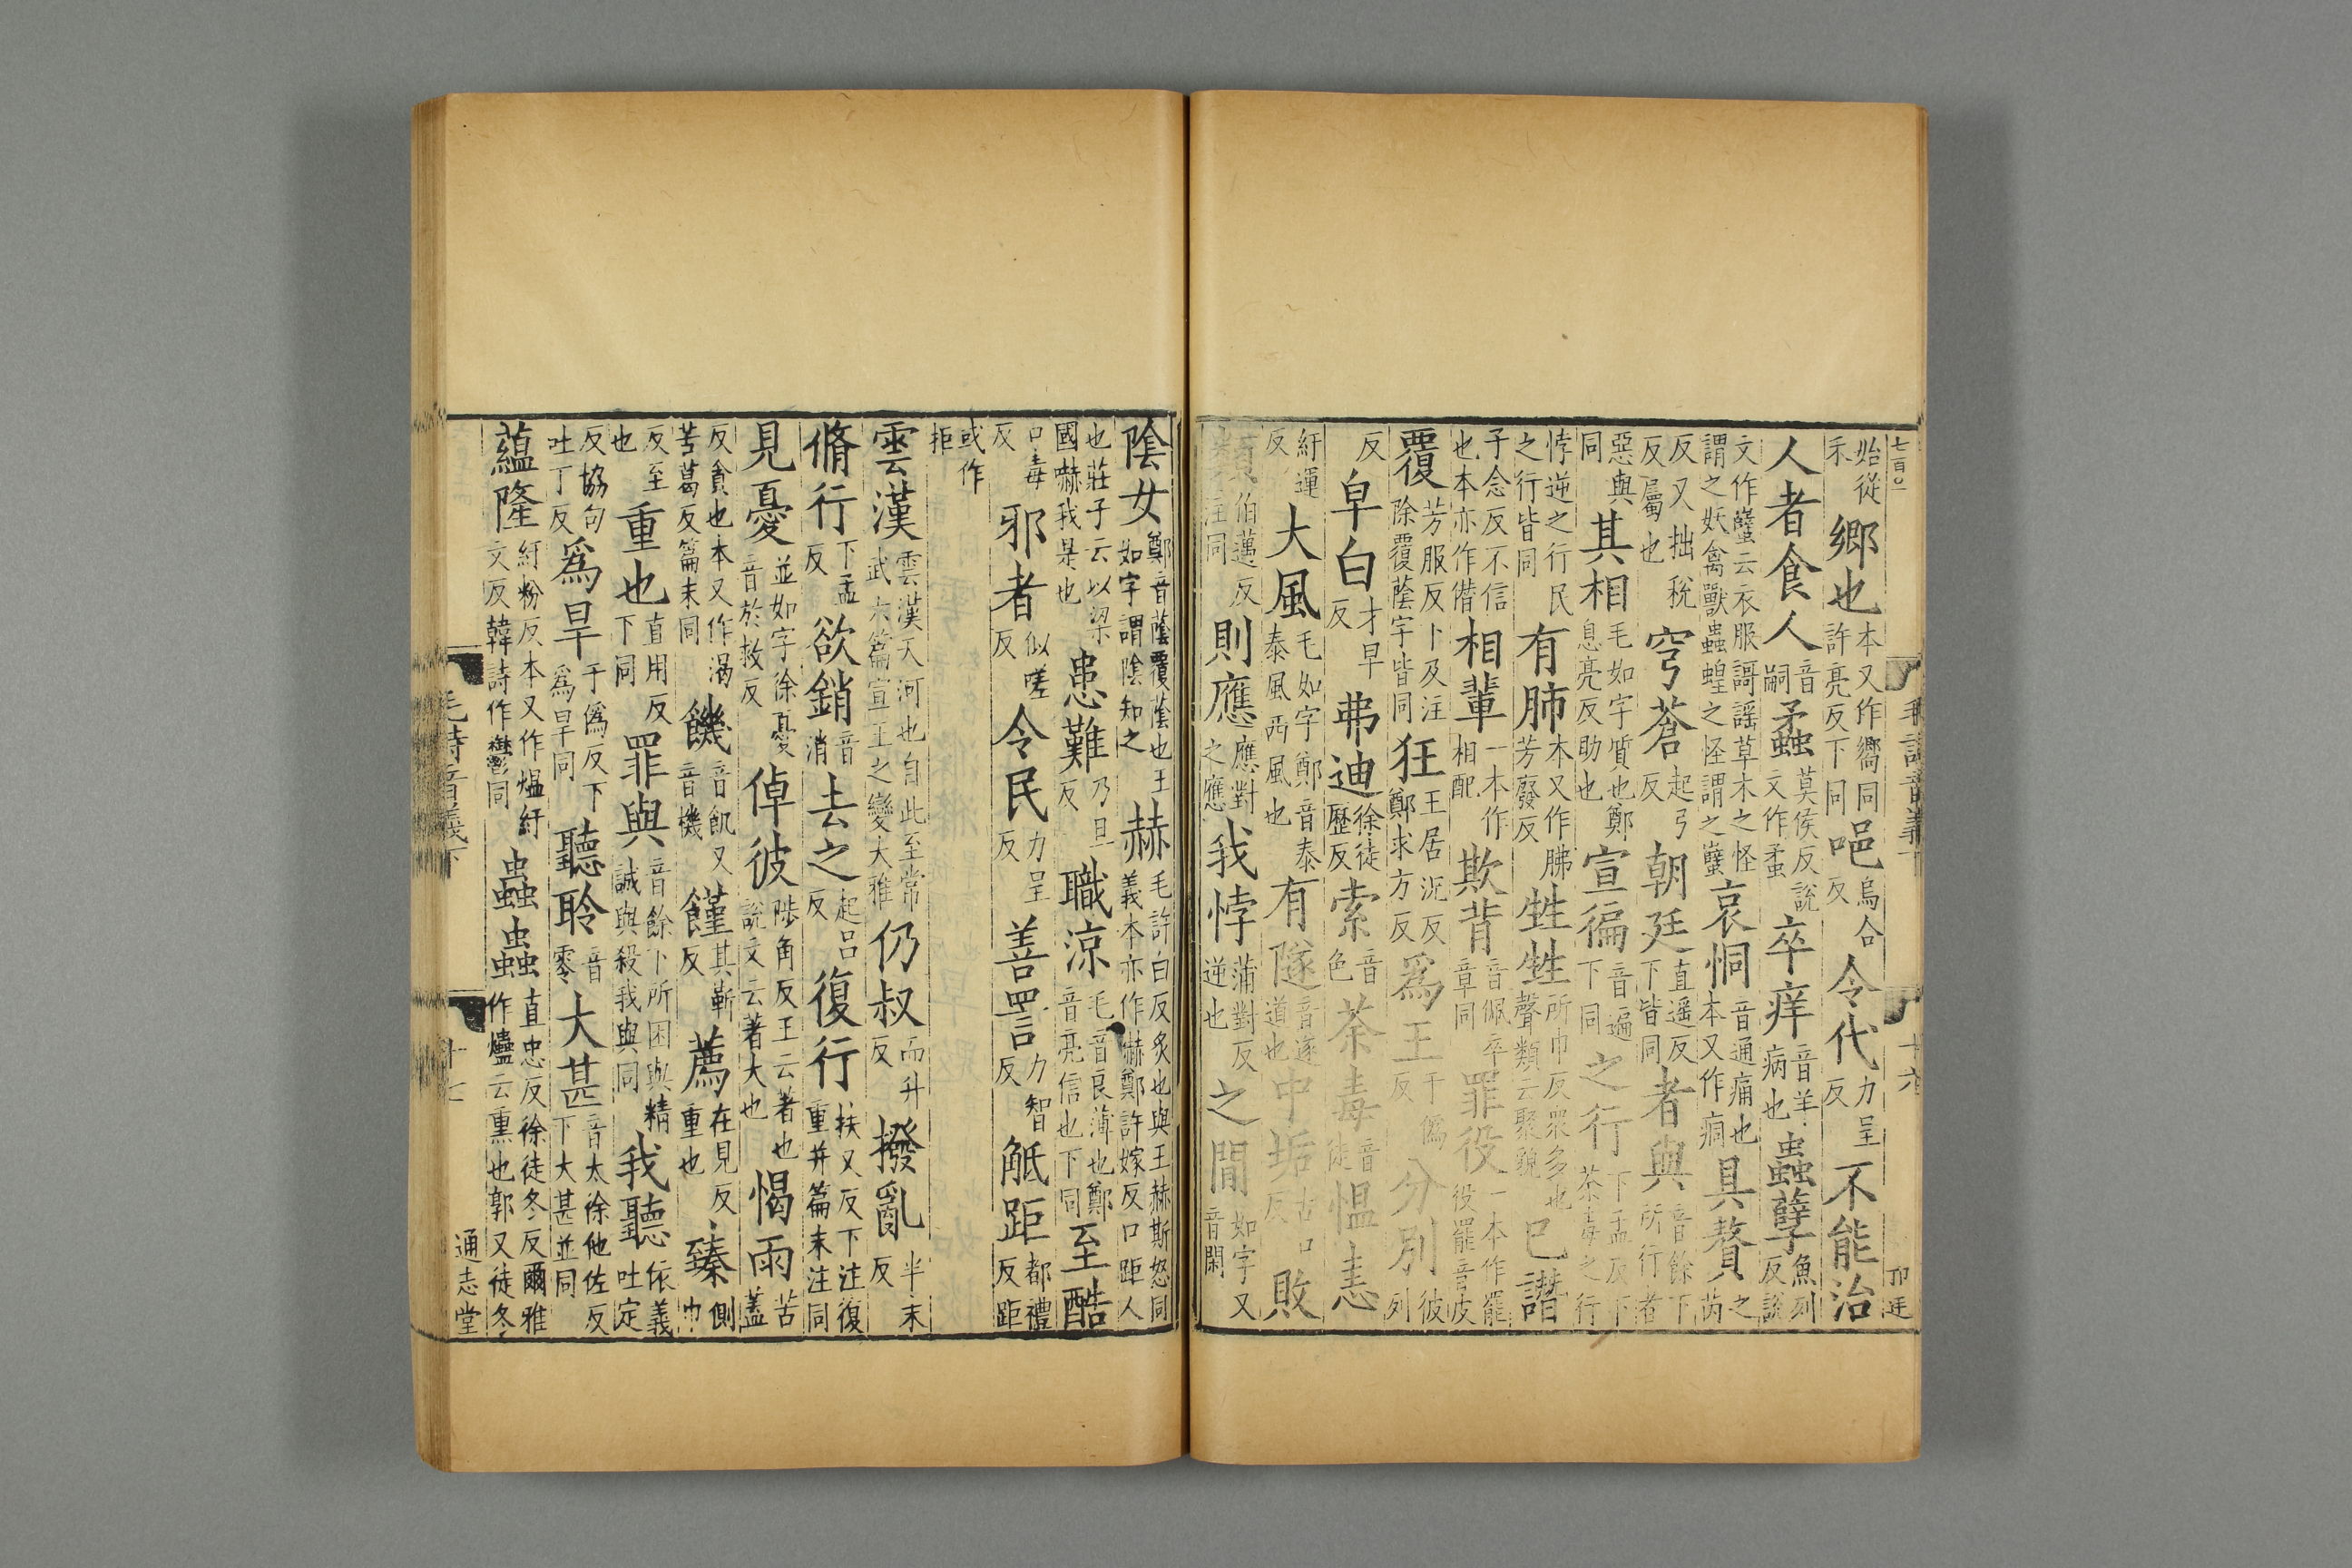 七百〇一 毛詩音義下 十六 卭廷
始從禾鄉也本又作嚮同許亮反下同唈烏合反令代力呈反不能治
人者食人音嗣蟊莫侯反說文作蟊卒痒音羊病也蟲孽魚列反說
文作蠥云衣服謌謡草木之怪謂之妖禽獸蟲蝗之怪謂之蠥哀恫音通痛也本又作痌具贅之芮
反又拙稅反屬也穹蒼起弓反朝廷直遥反下皆同者與音餘下所行者
惡與同其相毛如字質也鄭息亮反助也宣徧音遍下同之行下孟反下荼毒之行
悖逆之行民之行皆同有肺本又作胏芳廢反甡甡所巾反衆多也聲類云聚貌已譖
子念反不信也本亦作僭相輩一本作相配欺背音佩卒章同罪役一本作罷役罷音皮
覆芳服反卜及注除覆蔭字皆同狂王居況反鄭求方反為王于僞反分別彼列
反皁白才早反弗迪徐徒歷反索音色荼毒音徒愠恚
紆運反大風毛如字鄭音泰泰風西風也有隧音遂道也中垢古口反敗
類伯邁反注同則應應對之應我悖蒲對反逆也之閒如字又音閑
陰女鄭音蔭覆蔭也王如字謂陰知之赫毛許白反炙也與王赫斯怒同義本亦作嚇鄭許嫁反口距人
也莊子云以梁國嚇我是也患難乃旦反職涼毛音良薄也鄭音亮信也下同至酷
口毒反邪者似嗟反令民力呈反善詈力智反觝距都禮反距
或作拒
雲漢雲漢天河也自此至常武六篇宣王之變大雅仍叔而升反撥亂半末反
脩行下孟反欲銷音消去之起呂反復行扶又反下注復重并篇末注同
見憂並如字徐憂音於救反倬彼陟角反王云著也說文云著大也愒雨苦蓋
反貪也本又作渴苦葛反篇末同饑音飢又音機饉其靳反薦在見反重也臻側巾
反至也重也直用反下同罪與音餘下所困與精誠與殺我與同我聽依義吐定
反協句吐丁反為旱于僞反下為旱同聽聆音零大甚音太徐他佐反下大甚並同
蘊隆紆粉反本又作煴紆文反韓詩作鬱同蟲蟲直忠反徐徒冬反爾雅作爞云熏也郭又徒冬
毛詩音義下 十七 通志堂